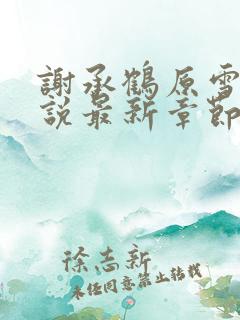 謝承鶴原雪
說最新章節
徐志新
未經同意禁止轉載